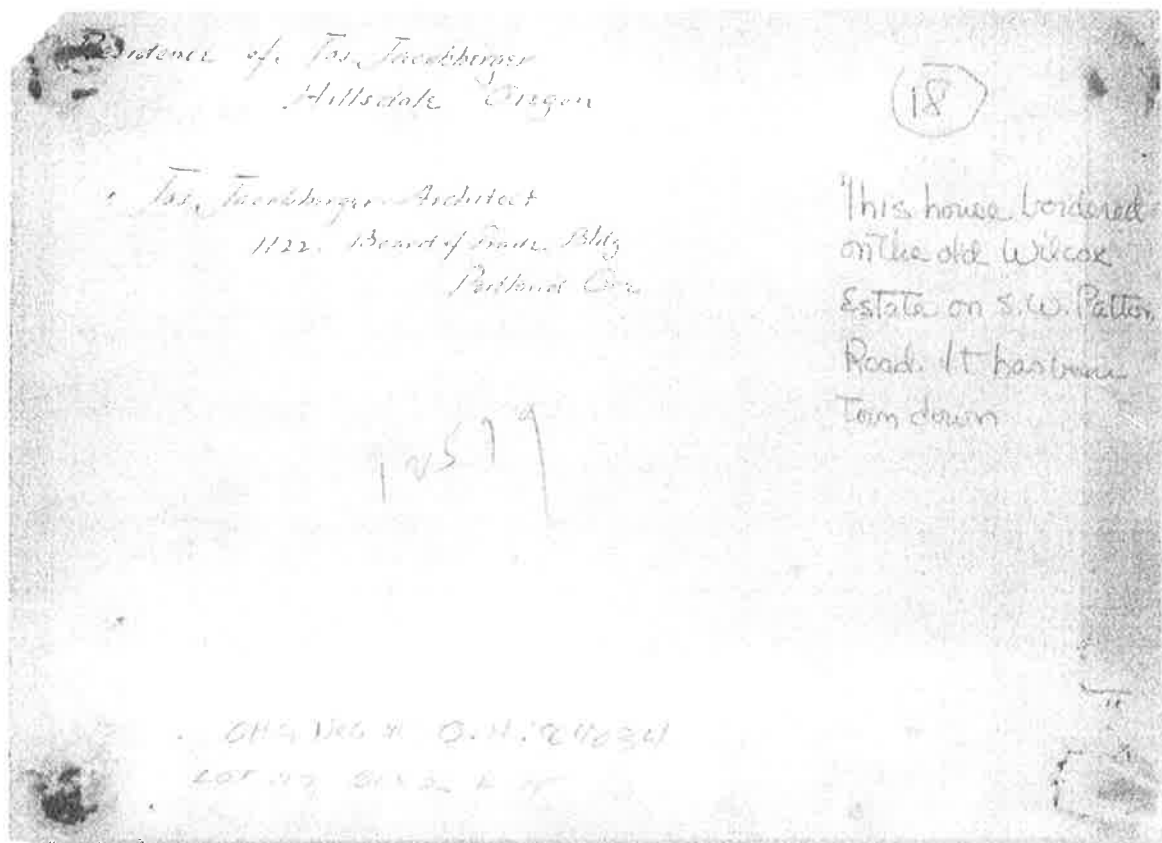 Residence of. Jos. Jacobberger
Hillsdale Oregon
Jos. Jacobberger Architect
1122. Board of Trade Bldg
Portland Ore
18
This house bordered
on the old Wilcox
Estate on S.W. Patton
Road. It has been
Torn down
OHS Neg #
Lot